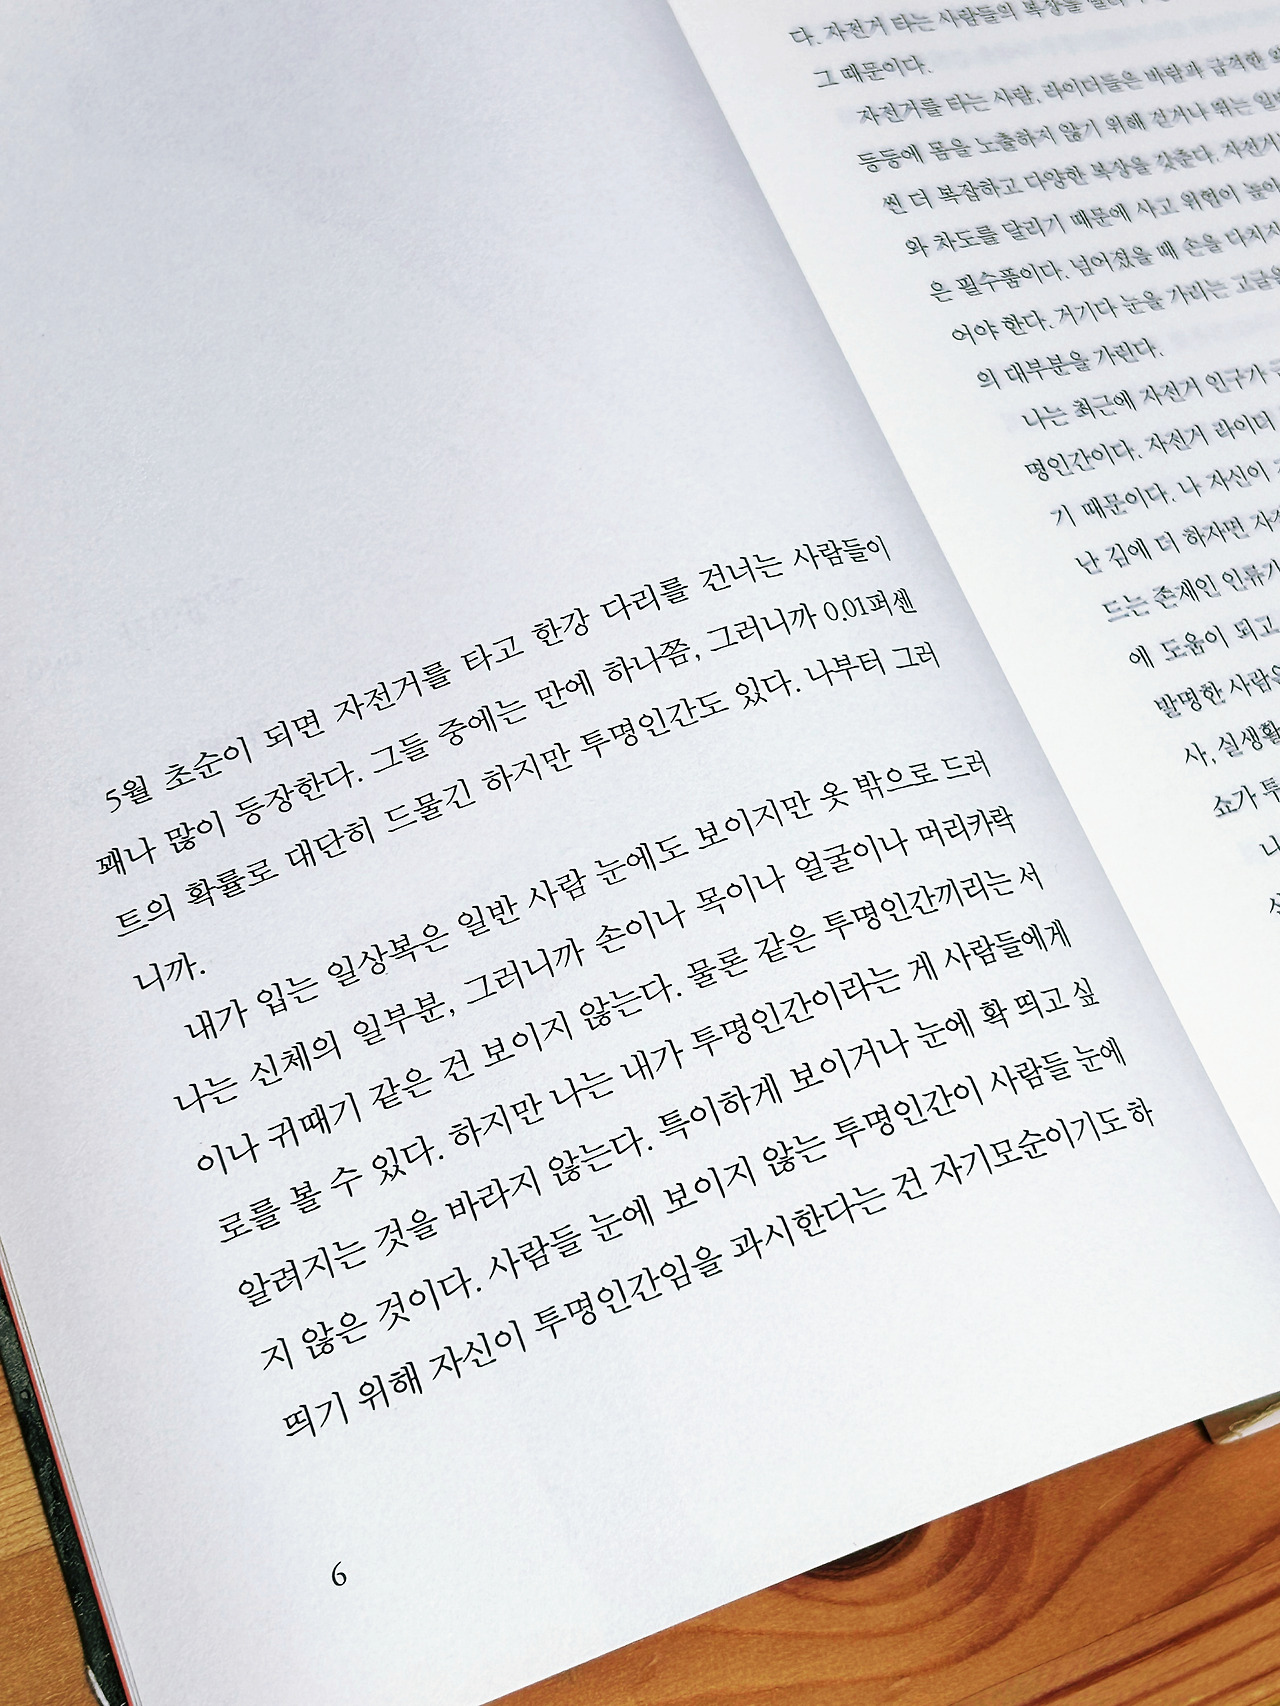 5월 초순이 되면 자전거를 타고 한강 다리를 건너는 사람들이
꽤나 많이 등장한다. 그들 중에는 만에 하나쯤, 그러니까 0.01퍼센
트의 확률로 대단히 드물긴 하지만 투명인간도 있다. 나부터 그러
니까.
내가 입는 일상복은 일반 사람 눈에도 보이지만 옷 밖으로 드러
나는 신체의 일부분, 그러니까 손이나 목이나 얼굴이나 머리카락
이나 귀때기 같은 건 보이지 않는다. 물론 같은 투명인간끼리는 서
로를 볼 수 있다. 하지만 나는 내가 투명인간이라는 게 사람들에게
알려지는 것을 바라지 않는다. 특이하게 보이거나 눈에 확 띄고 싶
지 않은 것이다. 사람들 눈에 보이지 않는 투명인간이 사람들 눈에
띄기 위해 자신이 투명인간임을 과시한다는 건 자기모순이기도 하
6
다. 자전거 타는 사람들의 복장을
그 때문이다.
자전거를 타는 사람, 라이더들은 바람과 급격한
등등에 몸을 노출하지 않기 위해 걷거나 뛰는
씬 더 복잡하고 다양한 복장을 갖춘다.
와 차도를 달리기 때문에 사고 위험이
은 필수품이다. 넘어졌을 때 손을
어야 한다. 거기다 눈을 가리는
의 대부분을 가린다.
나는 최근에 자전거 인구가
명인간이다. 자전거 라이더
기 때문이다. 나 자신이
난 김에 더 하자면
드는 존재인 인류가
에 도움이 되고
발명한
사, 실생활
쇼가